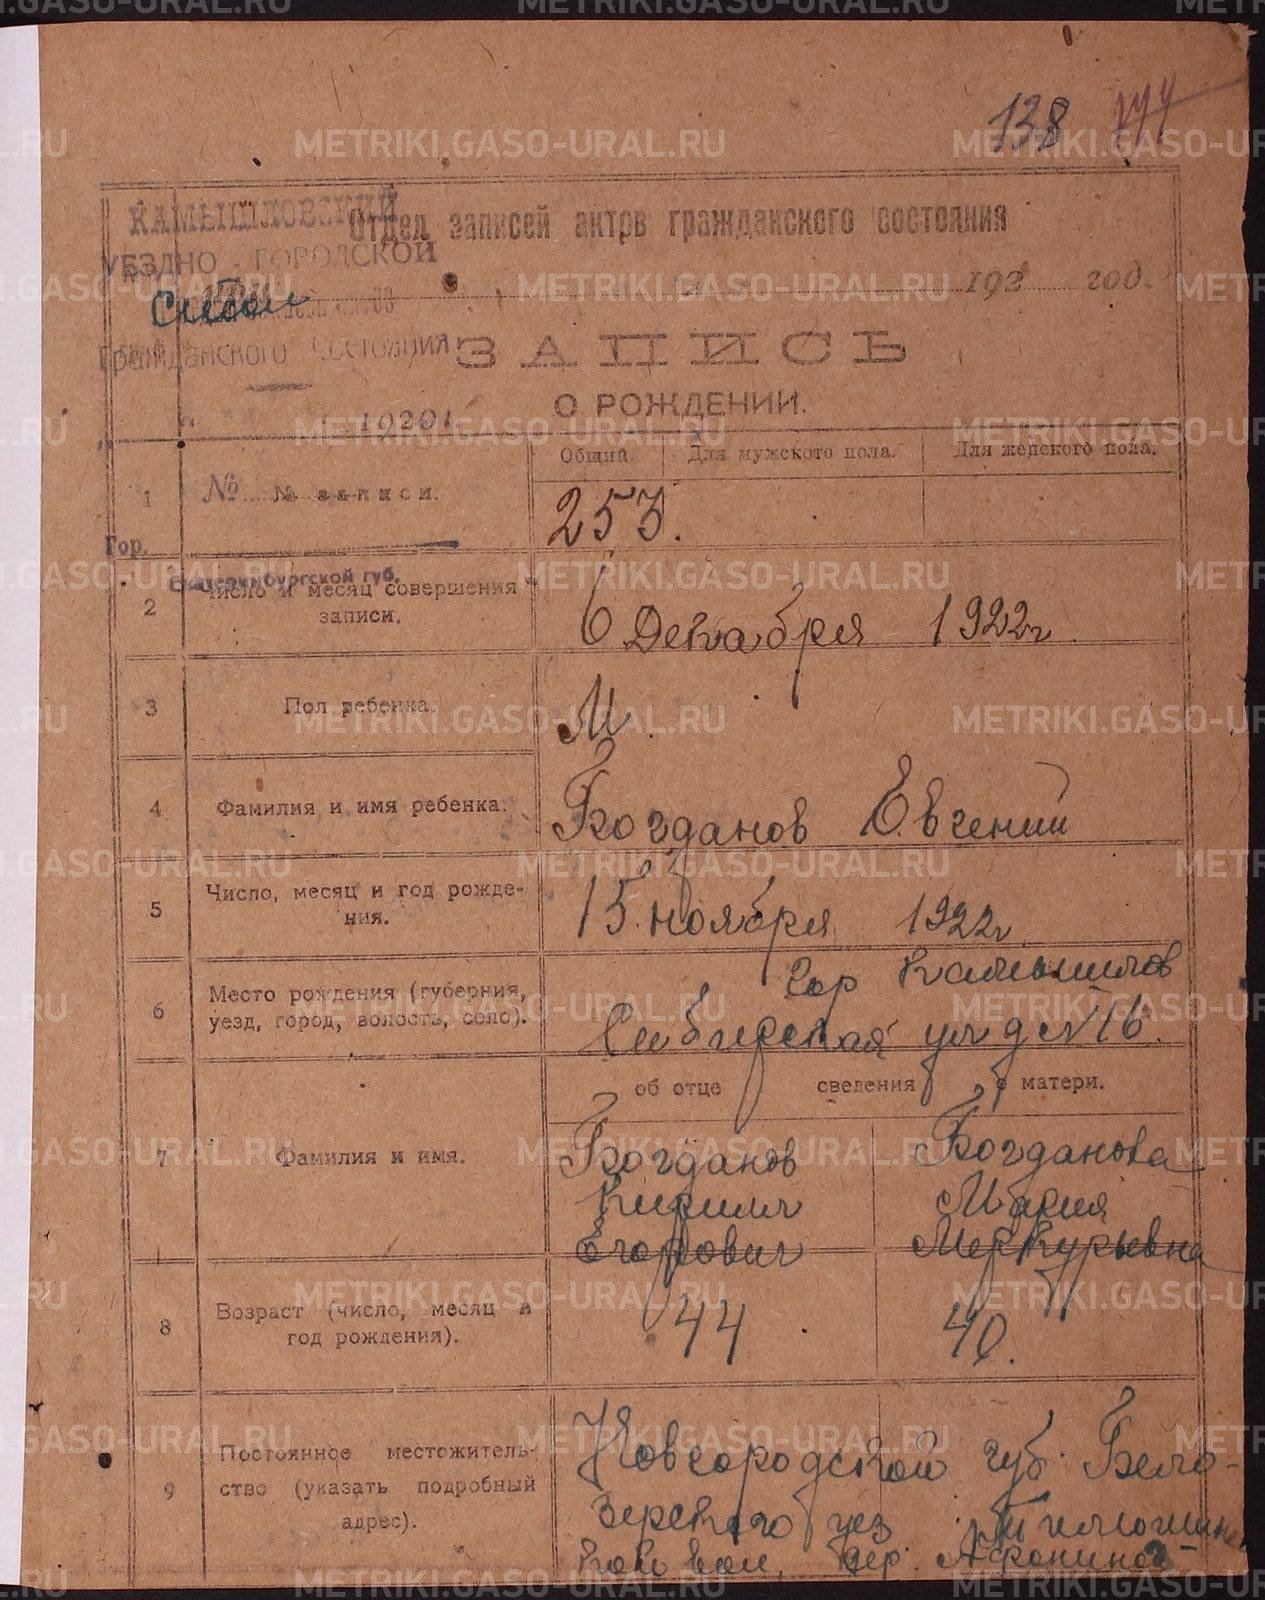 138 144
КАМЫШЛОВСКИЙ
Отдел записей актов гражданского состояния
УЕЗДНО-ГОРОДСКОЙ
192 год.
Гражданского Состояния
ЗАПИСЬ
О РОЖДЕНИИ.
" " 1920 г.
Общий. Для мужского пола. Для женского пола.
1 № № записи. 253.
Гор.
Екатеринбургской губ.
2 Число и месяц совершения
записи. 6 Декабря 1922 г
3 Пол ребенка. М.
4 Фамилия и имя ребенка. Богданов Евгений
5 Число, месяц и год рожде-
ния. 15. ноября 1922 г.
гор Камышлов
6 Место рождения (губерния,
уезд, город, волость, село). Сибирская ул д №16.
об отце сведения о матери.
7 Фамилия и имя. Богданов Богданова
Кирилл Мария
Егорович Меркурьевна
8 Возраст (число, месяц и
год рождения). 44 40.
9 Постоянное местожитель-
ство (указать подробный
адрес). Новгородской губ. Бело-
зерского уез
кой вол, дер. Афонино
METRIKI.GASO-URAL.RU